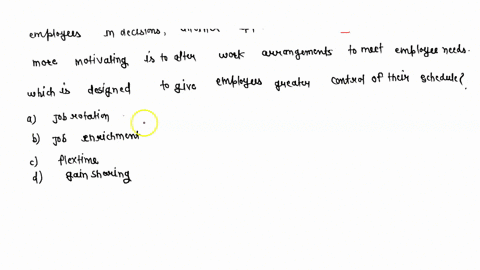 employees in decisions, another
more motivating is to alter work arrangements to meet employee needs.
which is designed to give employees greater control of their schedule?
a) job rotation
b) job enrichment
c) flextime
d) gain sharing